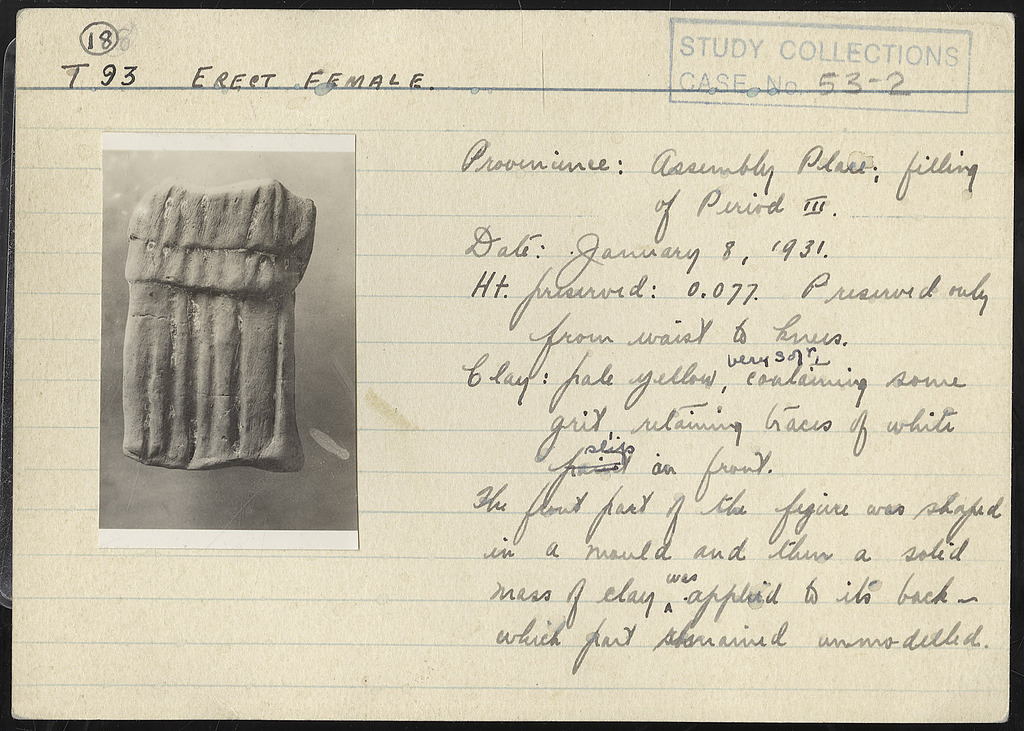 18
T 93 ERECT FEMALE.
STUDY COLLECTIONS
CASE No. 53-2
Provenience: Assembly Place; filling
of Period III.
Date: January 8, 1931.
Ht. preserved: 0.077. Preserved only
from waist to knees.
Clay: pale yellow, very soft, containing some
grit, retaining traces of white
paint slip on front.
The front part of the figure was shaped
in a mould and then a solid
mass of clay was applied to its back –
which part remained unmodelled.